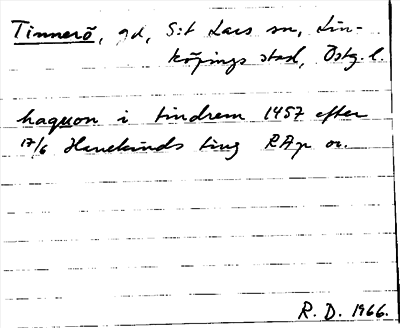 Tinnerö, gd, S:t Lars sn, Lin-
köpings stad, Östg. l.
haquon i tindrem 1457 efter
17/6 Hanekinds ting RAp or.
R. D. 1966.